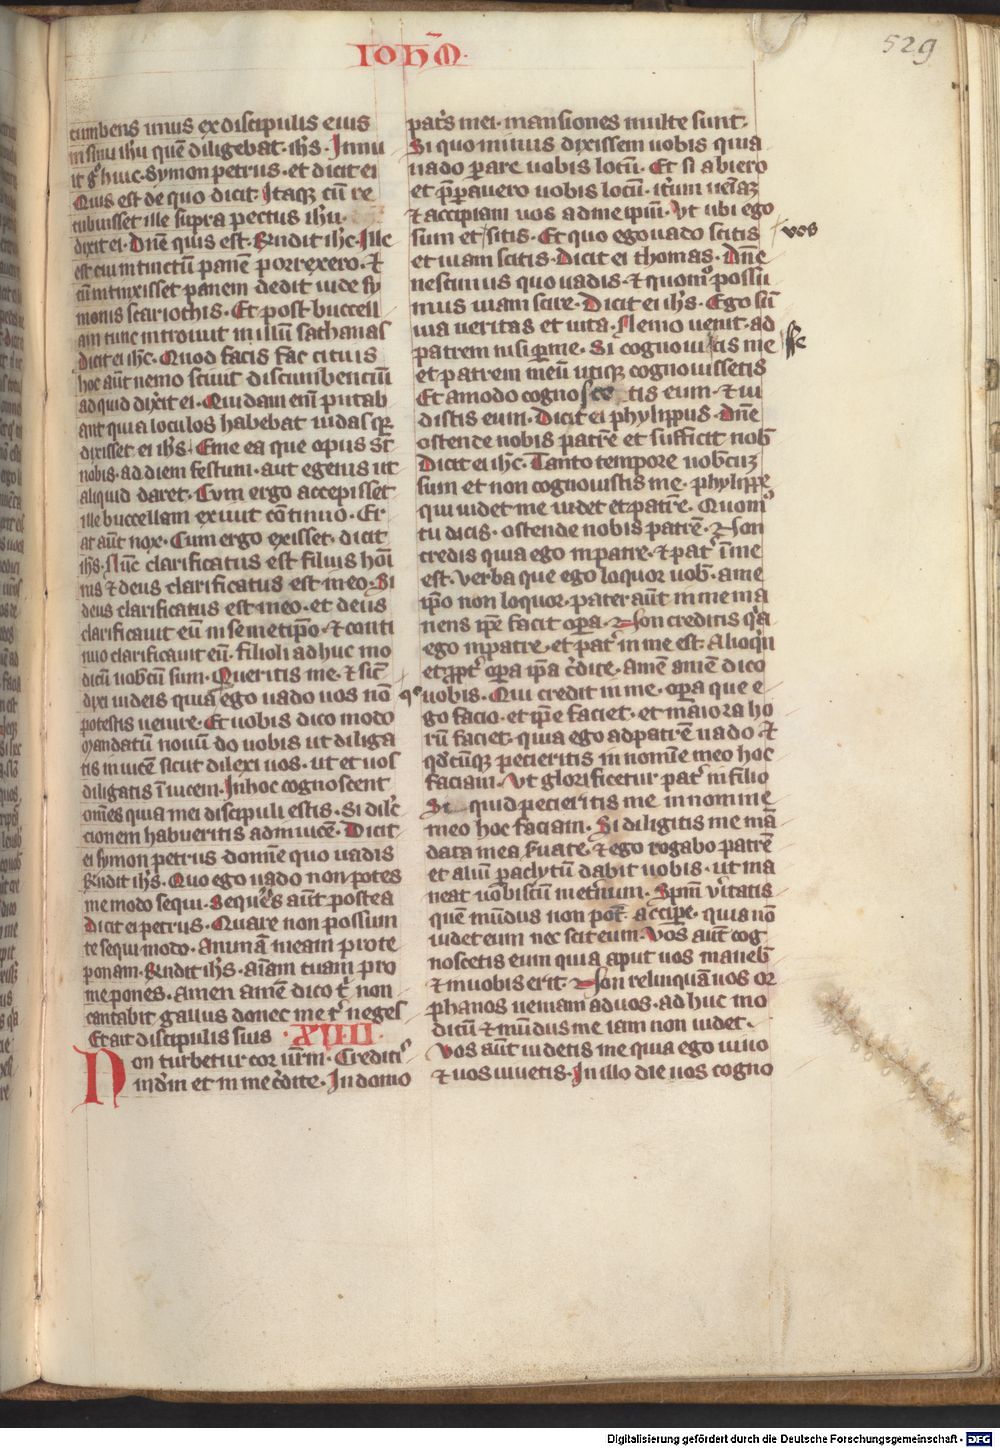 IOHM̄.
529
cumbens unus ex discipulis eius
in sinu ihū quē diligebat. ihs̄. Innu
it gͦ huic. Symon petrus. et dicit ei
Quis est de quo dicit. Itaqꝫ cū re
cubuisset ille supra pectus ihū.
dixit ei. Dn̄e quis est. Rn̄dit ihc̄. Ille
est cui intinctū panē porrexero. ⁊
cū intinxisset panem dedit iude sy
monis scariothis. Et post buccell
am tunc introiuit in illū sathanas
Dicit ei ihc̄. Quod facis fac citius
hoc aūt nemo sciuit discumbenciū
ad quid dixit ei. Quidam enī putab
ant quia loculos habebat iudas qꝫ
dixisset ei ihs̄. Eme ea que opus st̄
nobis. ad diem festum. aut egenis ut
aliquid daret. Cum ergo accepisset
ille buccellam exiuit cōtinuo. Er
at aūt nox. Cum ergo exisset. dicit
ihs̄. Nūc clarificatus est filius hōi
nis ⁊ deus clarificatus est in eo. Si
deus clarificatus est in eo. et deus
clarificauit eū in semetip̄o. ⁊ conti
nuo clarificauit eū. filioli adhuc mo
dicū uobcū sum. Queritis me. ⁊ sic̄
dixi iudeis quia ego uado uos nō
potestis uenire. Et uobis dico modo
Mandatū nouū do uobis ut diliga
tis inuicē sicut dilexi uos. ut et uos
diligatis īuicem. In hoc cognoscent
om̄es quia mei discipuli estis. Si dilc̄
cionem habueritis adinuicē. Dicit
ei symon petrus domīe quo uadis
Rn̄dit ihs̄. Quo ego uado non potes
me modo sequi. Sequeris aūt postea
Dicit ei petrus. Quare non possum
te sequi modo. Animā meam pro te
ponam. Rn̄dit ihs̄. aīam tuam pro
me pones. amen amē dico tͥ non
cantabit gallus donec me tͬ neges
Et ait discipulis suis .XIIII.
Non turbetur cor ur̄m. Creditͥs
in dm̄ et in me cͬdite. In domo
patͥs mei. mansiones multe sunt.
Si quo minus dixissem uobis quia
uado ꝑare uobis locū. Et si abiero
et p̄ꝑauero uobis locū. itͬum uenīaꝫ
⁊ accipiam uos ad me ipm̄. Ut ubi ego
sum et sitis. Et quo ego uado scitis
vos
et uiam scitis. Dicit ei thomas. Dn̄e
nescimus quo uadis. ⁊ quomͦ possu
mus uiam scire. Dicit ei ihs̄. Ego sū
uia ueritas et uita. Nemo uenit. ad
patrem nisi ꝑ me. Si cognouistis me
et patrem meū utiqꝫ cognouissetis
Et amodo cognoscetis eum. ⁊ ui
distis eum. Dicit ei phylippus. Dn̄e
ostende nobis patrē et sufficit nob̄
Dicit ei ihc̄. Tanto tempore uob̄cuꝫ
sum et non cognouistis me. phylippe
qui uidet me uidet et patrē. Quomͦ
tu dicis. ostende nobis patrē. Non
credis quia ego in patre. ⁊ patͬ ī me
est. Verba que ego loquor uob̄. a me
ip̄o non loquor. pater aūt in me ma
nens ip̄e facit oꝑa. Non creditis qͥa
ego in patre. et patͬ in me est. Alioqͥn
et ꝓptͬ oꝑa ip̄a cͬdite. amē amē dico
uobis. Qui credit in me. opera que e
go facio. et ip̄e faciet. et māiora ho
rū faciet. quia ego ad patrē uado ⁊
qd̄cūqꝫ pecieritis in nomīe meo hoc
faciam. Ut glorificetur patͬ in filio
Si quid pecieritis me in nomine
meo hoc faciam. Si diligitis me mā
data mea ẜuate. ⁊ ego rogabo patrē
et aliū ꝑaclytū dabit uobis. ut ma
neat uobiscū in et̄num. Spm̄ ūitatis
quē mūdus non pot̄. accipe. quia nō
uidet eum nec scit eum. Vos aūt cog
noscetis eum quia aput uos maneb̄
⁊ in uobis erit. Non relinquā uos or
phanos ueniam ad uos. ad huc mo
dicū ⁊ mūdus me iam non uidet.
Vos aūt uidetis me quia ego uiuo
⁊ uos uiuetis. In illo die uos cogno
Digitalisierung gefördert durch die Deutsche Forschungsgemeinschaft - DFG